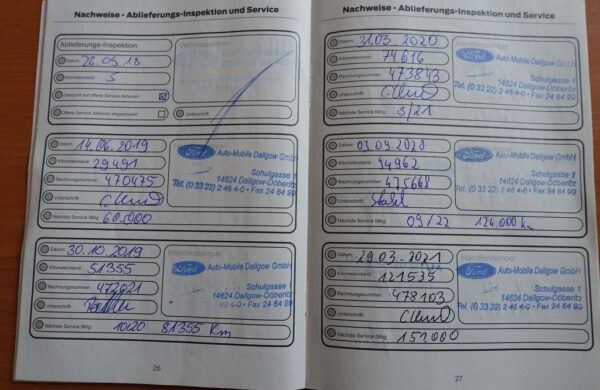 Nachweise - Ablieferungs-Inspektion und Service
Ablieferungs-Inspektion
Vertragspartner
Datum: 28.09.18
Kilometerstand: 5
Überprüft auf offene Service-Aktionen
Offene Service-Aktionen abgearbeitet
Unterschrift:
Datum: 14.06.2019
Kilometerstand: 29491
Rechnungsnummer: 470475
Unterschrift:
Nächste Service fällig: 60.000
Ford Auto-Mobile Dallgow GmbH
Schulgasse 1
14624 Dallgow-Döberitz
Tel. (0 33 22) 2 46 4-0 • Fax 24 64 99
Datum: 30.10.2019
Kilometerstand: 51355
Rechnungsnummer: 472621
Unterschrift:
Nächste Service fällig: 10/20 81355 Km
Händlerstempel
Ford Auto-Mobile Dallgow GmbH
Schulgasse 1
14624 Dallgow-Döberitz
Tel. (0 33 22) 2 46 4-0 • Fax 24 64 99
26
Nachweise - Ablieferungs-Inspektion und Service
Datum: 31.03.2020
Kilometerstand: 74616
Rechnungsnummer: 473843
Unterschrift:
Nächste Service fällig: 3/21
Händlerstempel
Ford Auto-Mobile Dallgow GmbH
Schulgasse 1
14624 Dallgow-Döberitz
Tel. (0 33 22) 2 46 4-0 • Fax 24 64 99
Datum: 03.09.2020
Kilometerstand: 94962
Rechnungsnummer: 475668
Unterschrift:
Nächste Service fällig: 09/22 124.000 km
Ford Auto-Mobile Dallgow GmbH
Schulgasse 1
14624 Dallgow-Döberitz
Tel. (0 33 22) 2 46 4-0 • Fax 24 64 99
Datum: 29.03.2021
Kilometerstand: 121535
Rechnungsnummer: 478103
Unterschrift:
Nächste Service fällig: 151.000
Händlerstempel
Ford Auto-Mobile Dallgow GmbH
Schulgasse 1
14624 Dallgow-Döberitz
Tel. (0 33 22) 2 46 4-0 • Fax 24 64 99
27